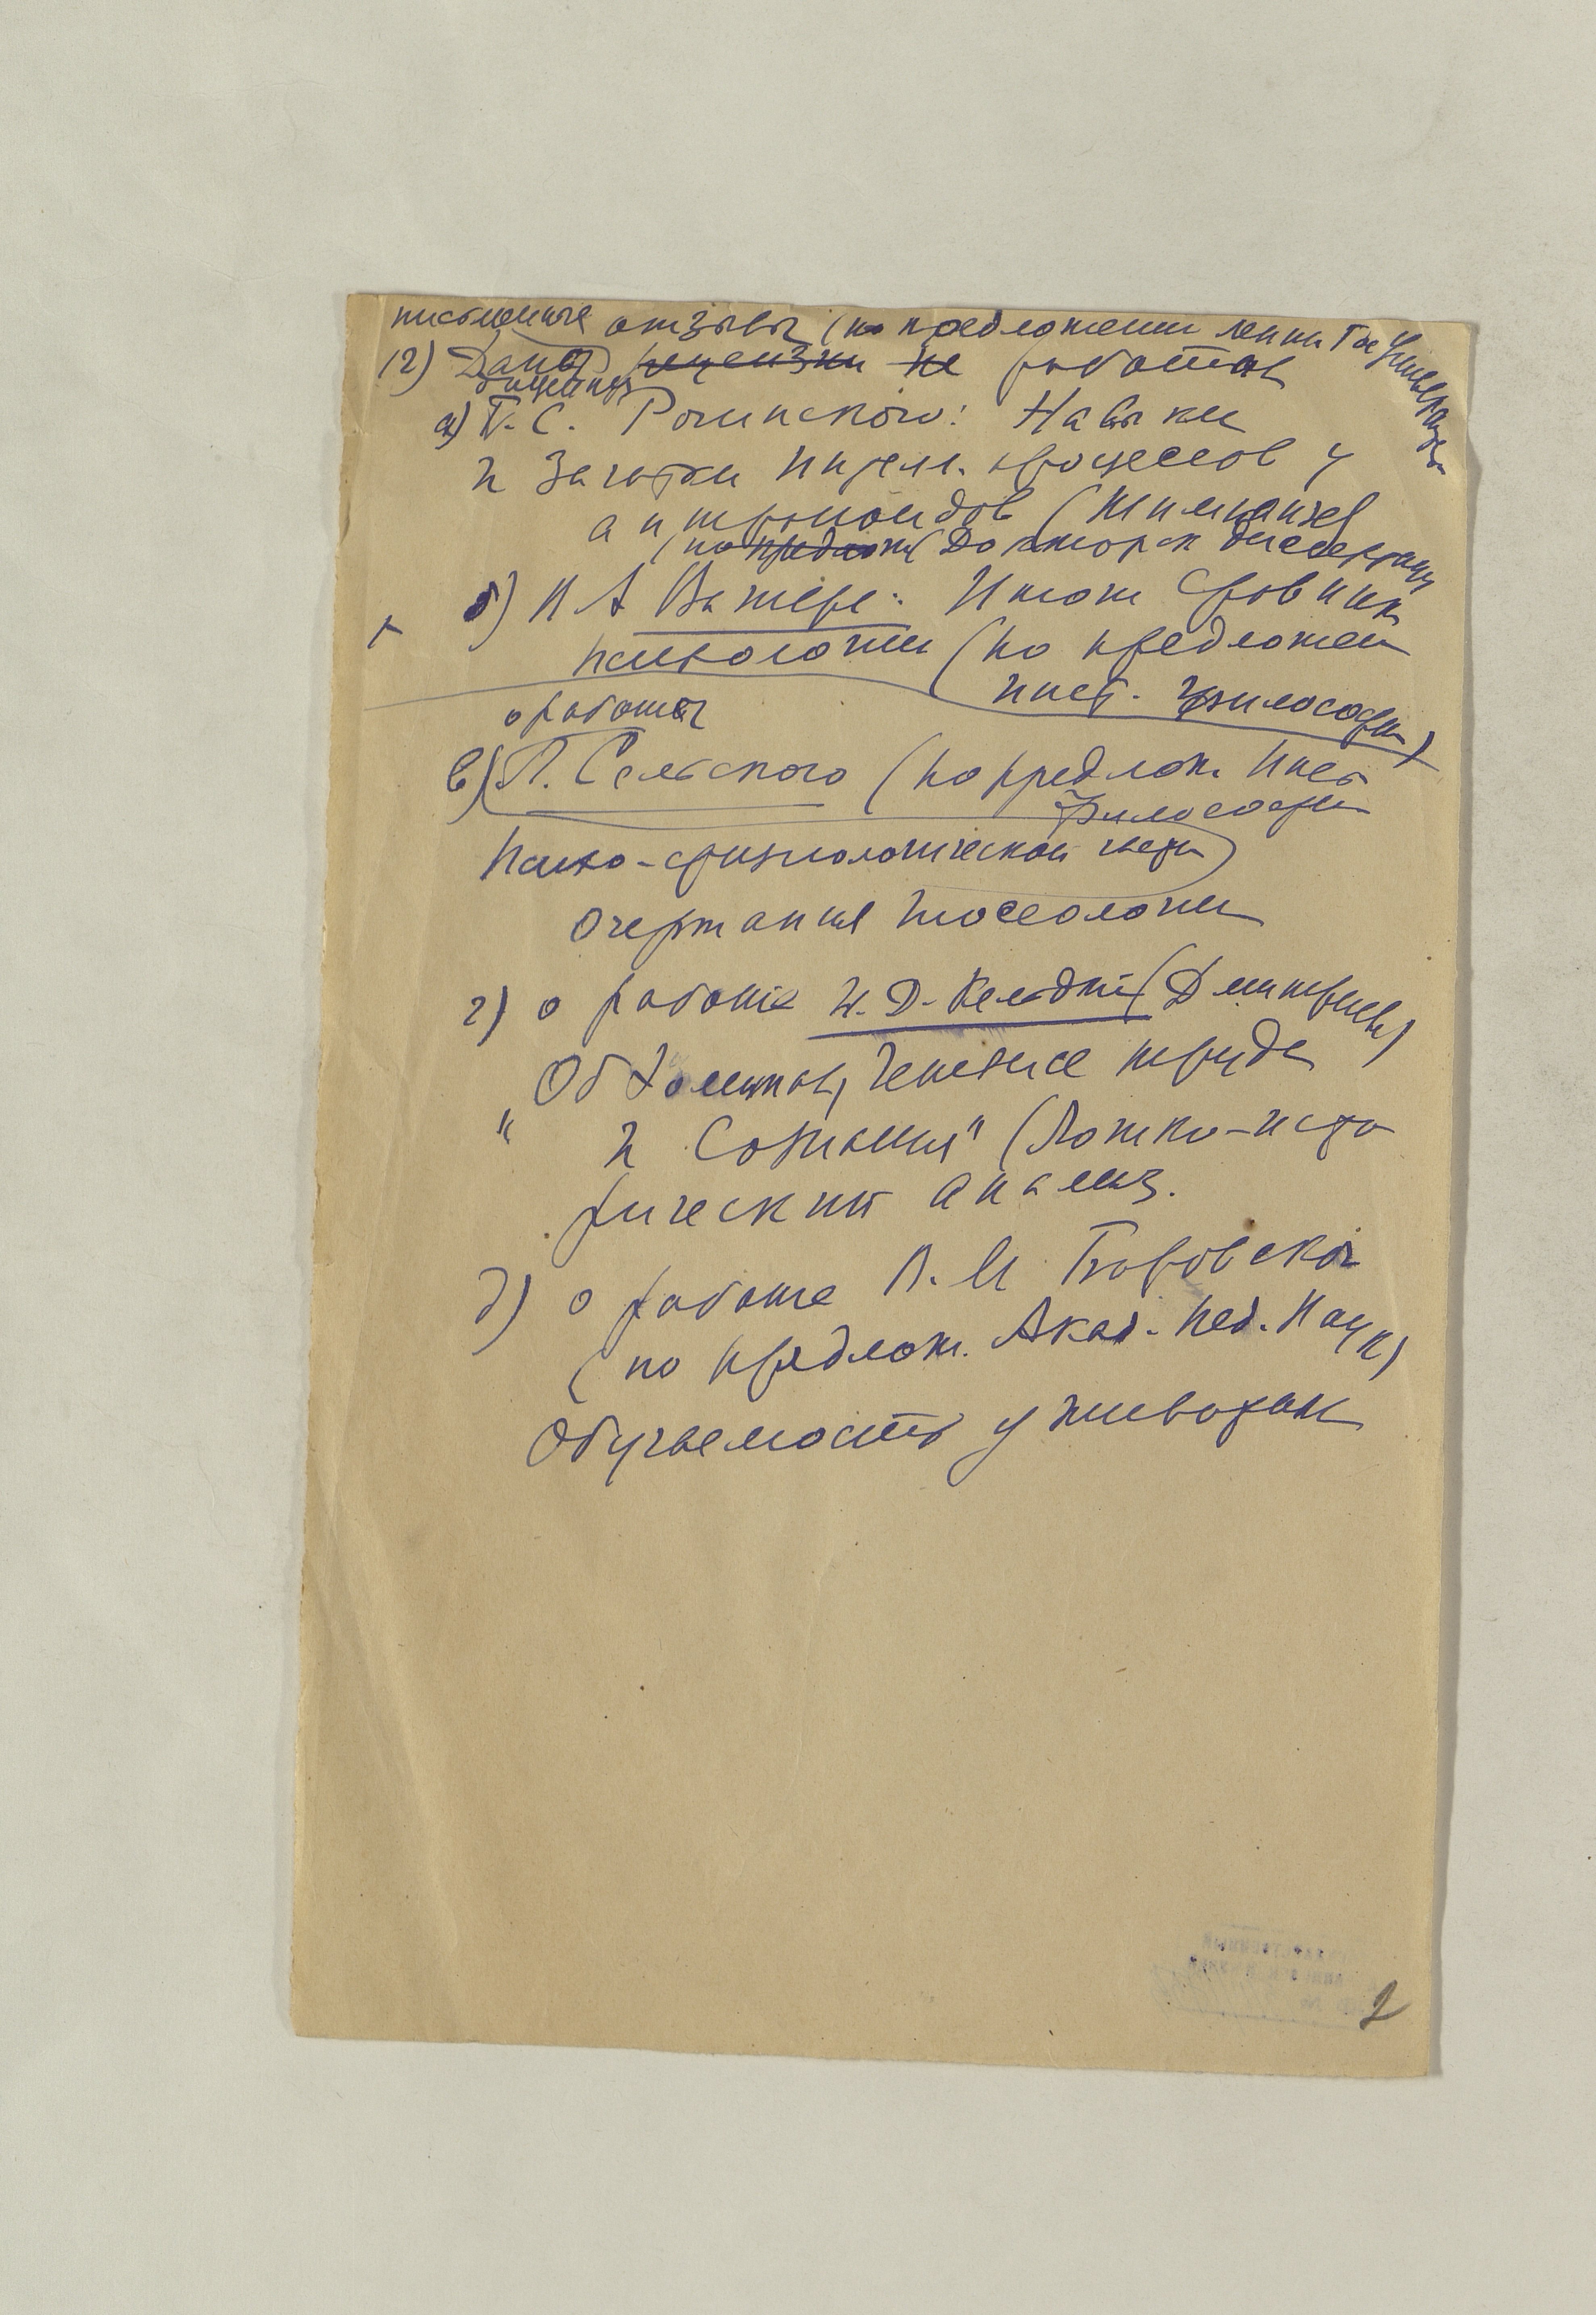 письменные отзывы (по предложении Ленин Гос Университ
12) Даны рецензии не работах
защиты
а) Г. С. Рогинского: Навыки
и Зачатки интел. процессов у
антропоидов (Шимпанзе)
(по предлож) Докторск диссертации
б) Н А Вагнере: Итоги Сравнит
психологии (по предложен
инст. Философии)
о работы
в) П. Сельского (по предлож. Инст
Философии
Психо-физиологической
Очертания Гносеологии
г) о работе Н. Д. (Дмитриев)
"Об Генезисе труда
и Сознания" (Логико-исто
рический анализ.
д) о работе В. М Боровского
(по предлож. Акад. Пед. Наук)
Обучаемость у животных
2